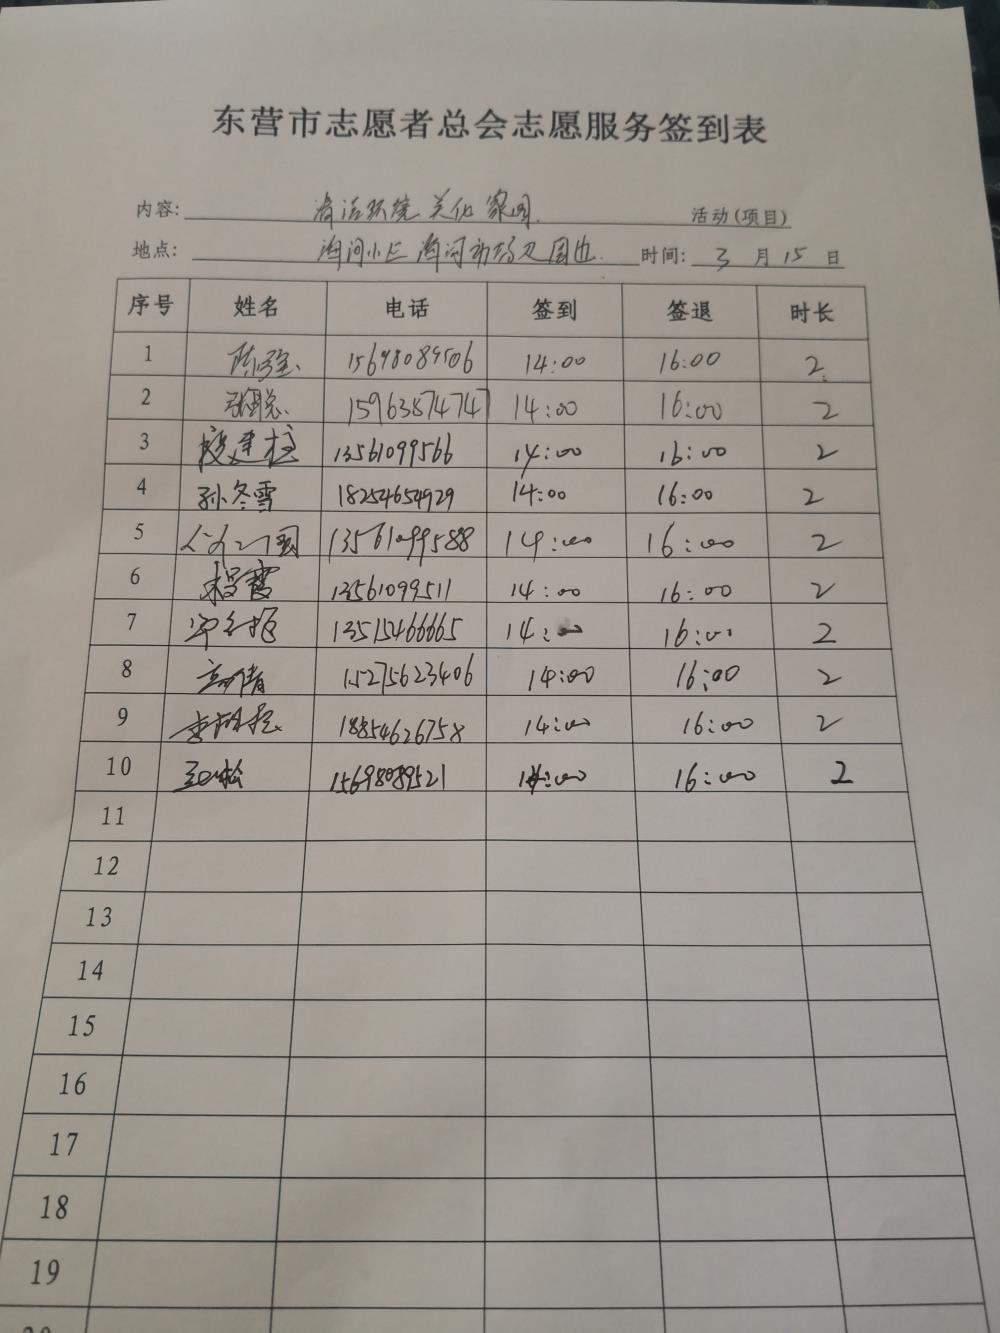 东营市志愿者总会志愿服务签到表
内容: 清洁环境 美化家园. 活动(项目)
地点: 海河小区 海河市场及周边. 时间: 3 月 15 日
序号 姓名 电话 签到 签退 时长
1 陈强 15698089506 14:00 16:00 2
2 张聪 15963874747 14:00 16:00 2
3 段建柱 13561099566 14:00 16:00 2
4 孙冬雪 18254654929 14:00 16:00 2
5 13561099588 14:00 16:00 2
6 杨雪 13561099511 14:00 16:00 2
7 13515466665 14:00 16:00 2
8 高倩 15275623406 14:00 16:00 2
9 18854626758 14:00 16:00 2
10 15698089521 14:00 16:00 2
11
12
13
14
15
16
17
18
19